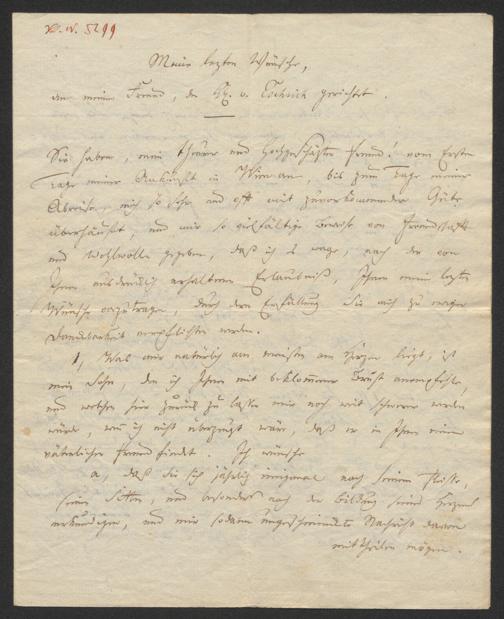 N. IV. 5299
Meine lezten Wünsche,
an meinen Freund, den H. v. Tschirch gerichtet.
Sie haben, mein theurer und hochgeschäzter Freund! vom Ersten
Tage meiner Ankunft in Wien an, bis zum Tage meiner
Abreise, mich so sehr und oft mit zuvorkommender Güte
überhäuft, und mir so vielfältige Beweise von Freundschaft
und Wohlwollen gegeben, daß ich es wage, nach der von
Ihnen ausdrücklich erhaltenen Erlaubniß, Ihnen meine lezten
Wünsche vorzutragen, durch deren Erfüllung Sie mich zu ewiger
Dankbarkeit verpflichten werden.
1, Was mir natürlich am meisten am Herzen liegt, ist
mein Sohn, den ich Ihnen mit beklommener Brust anempfehle,
und welchen hier zurück zu lassen mir noch weit schwerer werden
würde, wenn ich nicht überzeugt wäre, daß er in Ihnen einen
väterlichen Freund findet. Ich wünsche
a, daß Sie sich jährlich einigemal nach seinem Fleiße,
seinen Sitten, und besonders nach der Bildung seines Herzens
erkundigen, und mir sodann ungeschminkte Nachricht davon
mittheilen mögen.